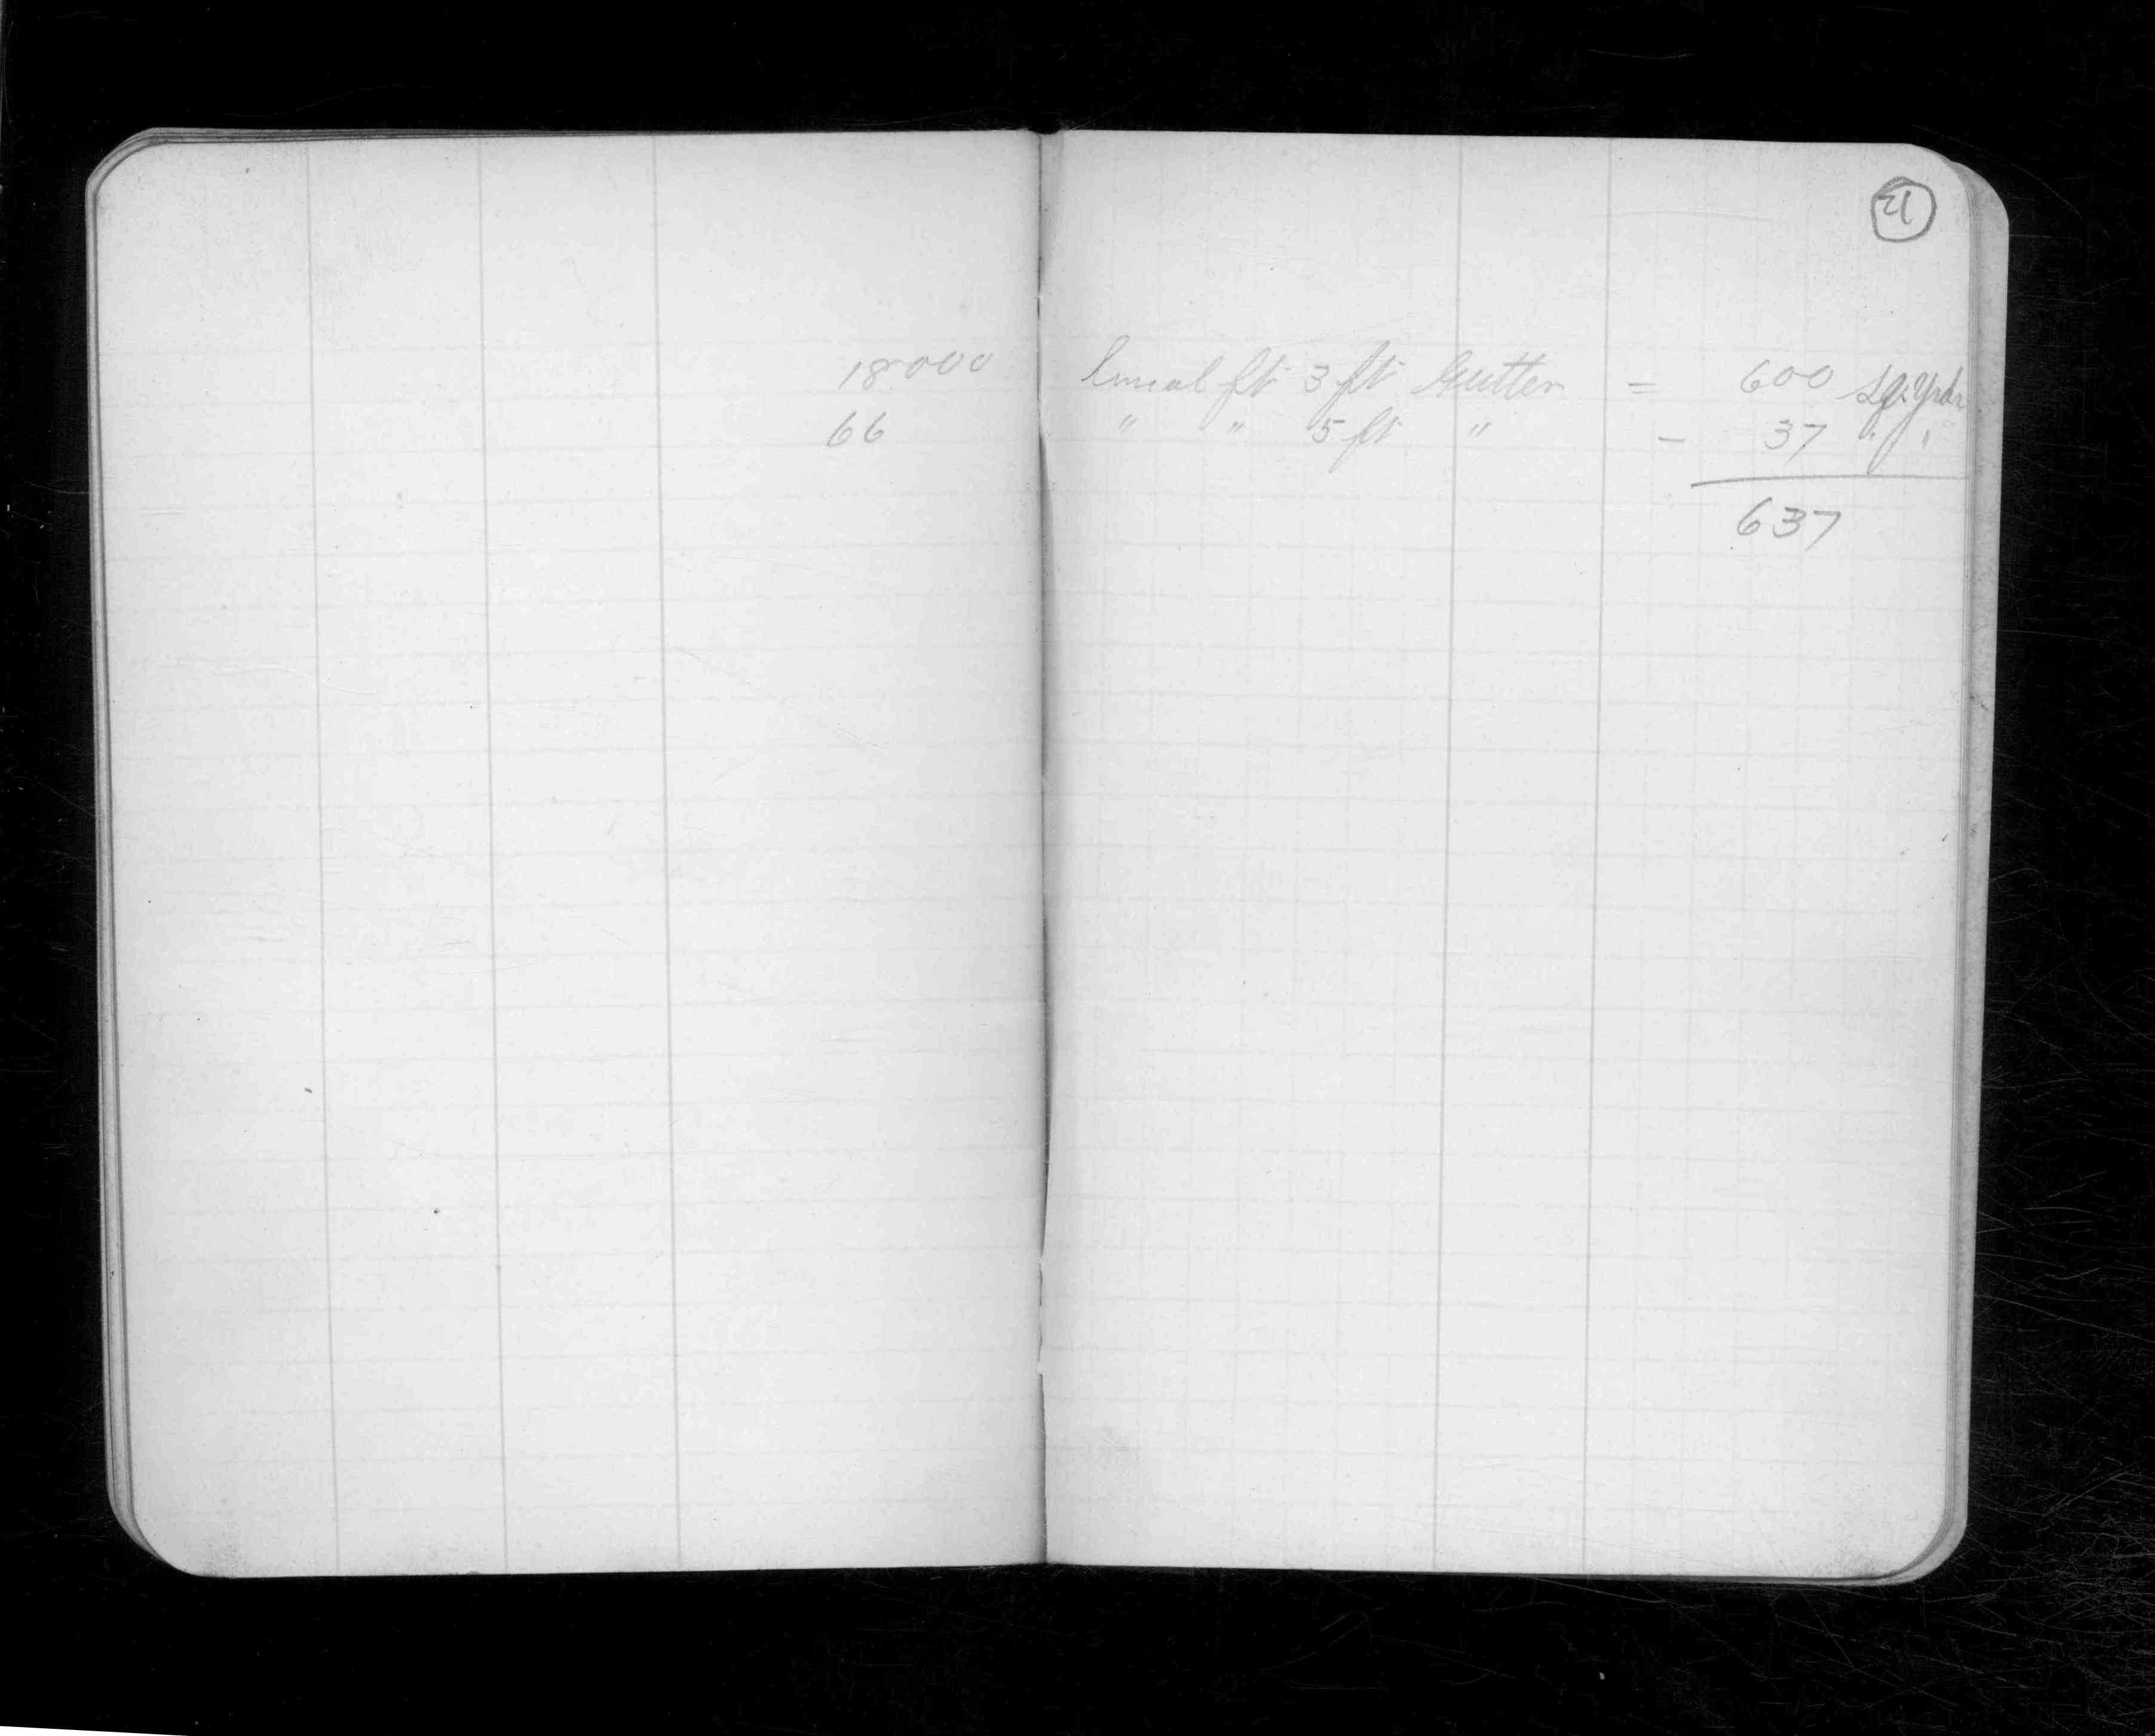 21
18000 lineal ft 3 ft Gutter = 600 Sq. Yrds.
66 " " 5 ft " - 37 " "
637